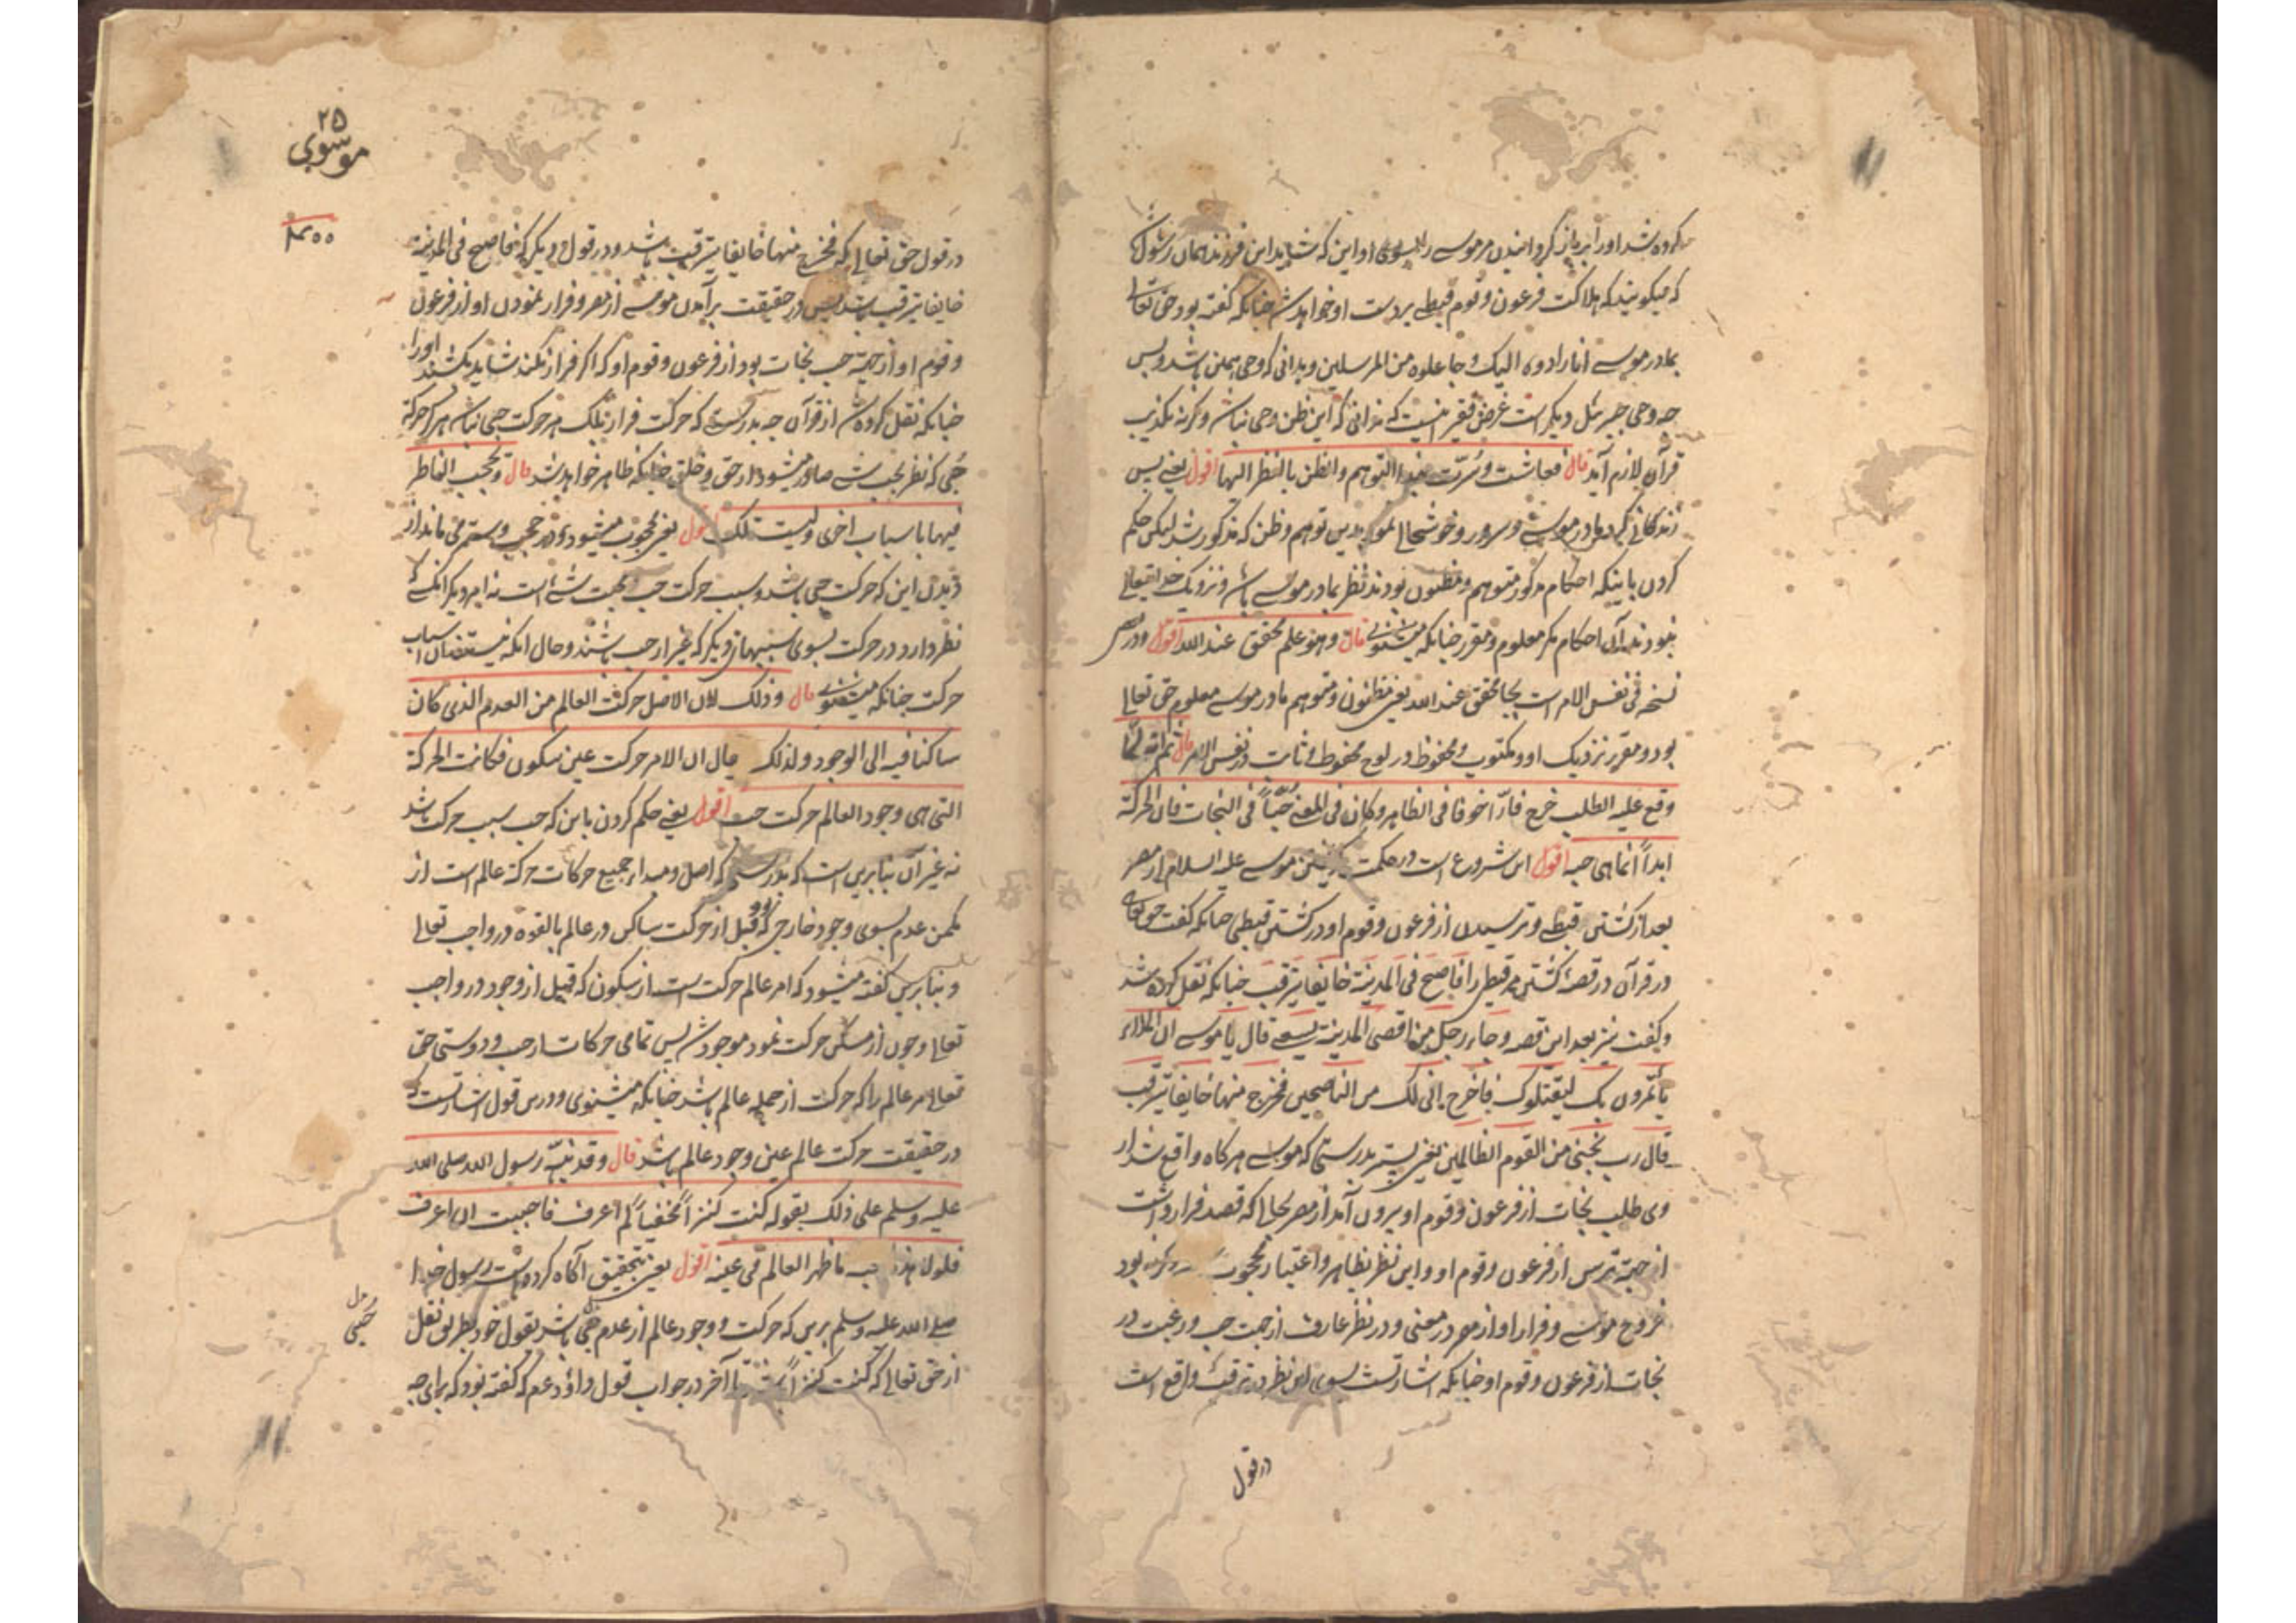 کرده شد اورا بر باز گردانیدن مر موسی را بسوی او این که شاید این فرزند همان رسول
که میگویند که هلاکت فرعون و قوم قبطی بر دست او خواهد شد چنانکه گفته بود حق تعالی
بمادر موسی انا رادوه الیک و جاعلوه من المرسلین و بدانی که وحی همین باشد و بس
چه وحی جبرئیل دیگر است غرض فقیر اینست که ندانی که این ظن وحی نباشد وگرنه تکذیب
قرآن لازم آید قال فعاشت و سرت بهذا التوهم والظن بالنظر الیها اقول یعنی پس
زندگانی کرد مادر موسی و سرور و خوشحالی نمود بدین توهم و ظن که مذکور شد لیکن حکم
کردن باینکه احکام مذکور متوهم و مظنون بودند نظر بمادر موسی باشد و نزدیک خدایتعالی
نبودند آن احکام مگر معلوم و مقرر چنانکه میشنوی قال وهو علم محقق عند الله اقول و در بعض
نسخه فی نفس الامر است بجای محقق عند الله یعنی مظنون و متوهم مادر موسی معلوم حق تعالی
بود و مقرر نزدیک او و مکتوب و محفوظ در لوح محفوظ و ثابت در نفس الامر قال ثم انه لما
وقع علیه الطلب خرج فارّاً خوفا فی الظاهر و کان فی المعنی حبّاً فی النجات فان الحرکة
ابداً انما هی حبیه اقول این شروع است در حکمت گریختن موسی علیه السلام از مصر
بعد از کشتن قبطی و ترسیدن از فرعون و قوم او در کشتن قبطی چنانکه گفت حق تعالی
در قرآن در قصهٔ کشتن مر قبطی را فاصبح فی المدینة خایفا یترقب چنانکه نقل کرده شد
و گفت نیز بعد این قصه و جاء رجل من اقصی المدینة یسعی قال یا موسی ان الملاء
یأتمرون بک لیقتلوک فاخرج انی لک من الناصحین فخرج منها خایفا یترقب
قال رب نجنی من القوم الظالمین یعنی پستر بدرستی که موسی هرگاه واقع شد از
وی طلب نجات از فرعون و قوم او بیرون آمد از مصر بحالی که قصد فرار داشت
از جهة ترس از فرعون و قوم او و این نظر بظاهر و اعتبار محجوب بود
خروج موسی و فرار او از مصر در معنی و در نظر عارف از جهت حب و رغبت در
نجات از فرعون و قوم او چنانکه اشارتست بسوی این نظر در ترقب واقع است
در قول
۲۵
موسوی
در قول حق تعالی که فخرج منها خایفا یترقب باشد و در قول دیگر که فاصبح فی المدینة
خایفا یترقب باشد پس در حقیقت برآمدن موسی از مصر و فرار نمودن او از فرعون
و قوم او از جهة حب نجات بود از فرعون و قوم او که اگر فرار نکند شاید بکشند اورا
چنانکه نقل کرده شد از قرآن چه بدرستی که حرکت فرار نه بلک هر حرکت حبی نباشد مگر حرکة
حبی که نظر بحب شی صادر میشود از حق و خلق چنانکه ظاهر خواهد شد قال و یحجب الناظر
فیها باسباب اخری و لیست تلک اقول یعنی محجوب میشود در حجب و ستر می ماند از
دیدن این که حرکت حبی باشد و سبب حرکت حب و محبت شی است نه امر دیگر آنکسی که
نظر دارد در حرکت بسوی سببهای دیگر که غیر از حب باشند و حال آنکه نیستند آن اسباب
حرکت چنانکه میشنوی قال و ذلک لان الاصل حرکت العالم من العدم الذی کان
ساکنا فیه الی الوجود و لذلک یقال ان الامر حرکت عن سکون فکانت الحرکة
التی هی وجود العالم حرکت حب اقول یعنی حکم کردن باین که حب سبب حرکت باشد
نه غیر آن بنابرین است که بدرستی که اصل و مبداء جمیع حرکات حرکة عالم است از
مکمن عدم بسوی وجود خارجی که بود قبل از حرکت ساکن در عالم بالقوه در واجب تعالی
و بنابرین گفته میشود که امر عالم حرکت است از سکون که قبل از وجود در واجب
تعالی و چون از مسکن حرکت نمود موجود شد پس تمامی حرکات از حب و دوستی حق
تعالی مر عالم را که حرکت از جمله عالم باشد چنانکه میشنوی و درین قول اشارتست که
در حقیقت حرکت عالم عین وجود عالم باشد قال و قد نبه رسول الله صلی الله
علیه وسلم علی ذلک بقوله کنت کنزاً مخفیاً لم اعرف فاحببت ان اعرف
فلولا هذا المحبه ما ظهر العالم فی عینه اقول یعنی بتحقیق آگاه کرده است رسول خدا
صلی الله علیه وسلم برین که حرکت و وجود عالم از عدم حبی باشد بقول خود بطریق نقل
از حق تعالی که کنت کنزاً است تا آخر در جواب قول داؤد عم که گفته بود که برای چه
حبی